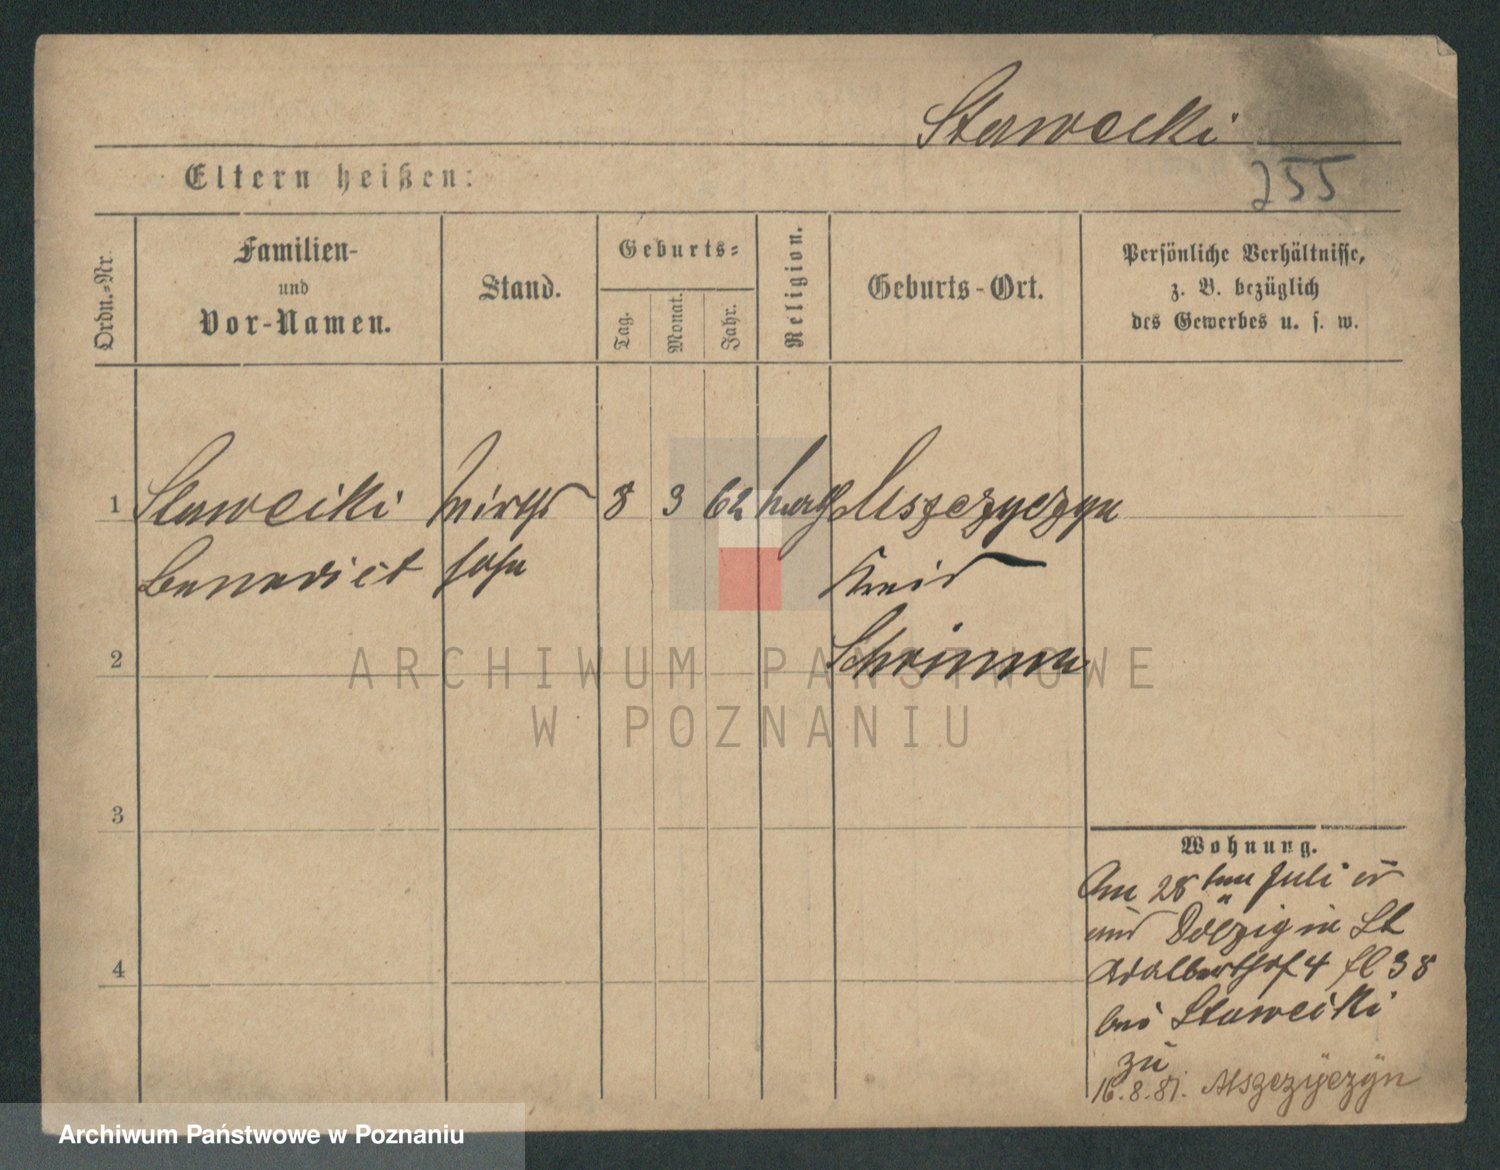 Stawecki
255
Eltern heißen:
Ordn.-Nr.
Familien-
und
Vor-Namen.
Stand.
Geburts-
Tag.
Monat.
Jahr.
Religion.
Geburts-Ort.
Persönliche Verhältnisse,
z. B. bezüglich
des Gewerbes u. s. w.
1
Staweiki Wirths 8 3 62 kath Mszczyczyn
Benedict sohn Kreis
2
Schrimm
ARCHIWUM PAŃSTWOWE
W POZNANIU
3
Wohnung.
Am 28 ten Juli cr
aus Dolzig in St
4
Adalberthof 4 38
bei Staweiki
zu
16.8.81. Mszczyczyn
Archiwum Państwowe w Poznaniu